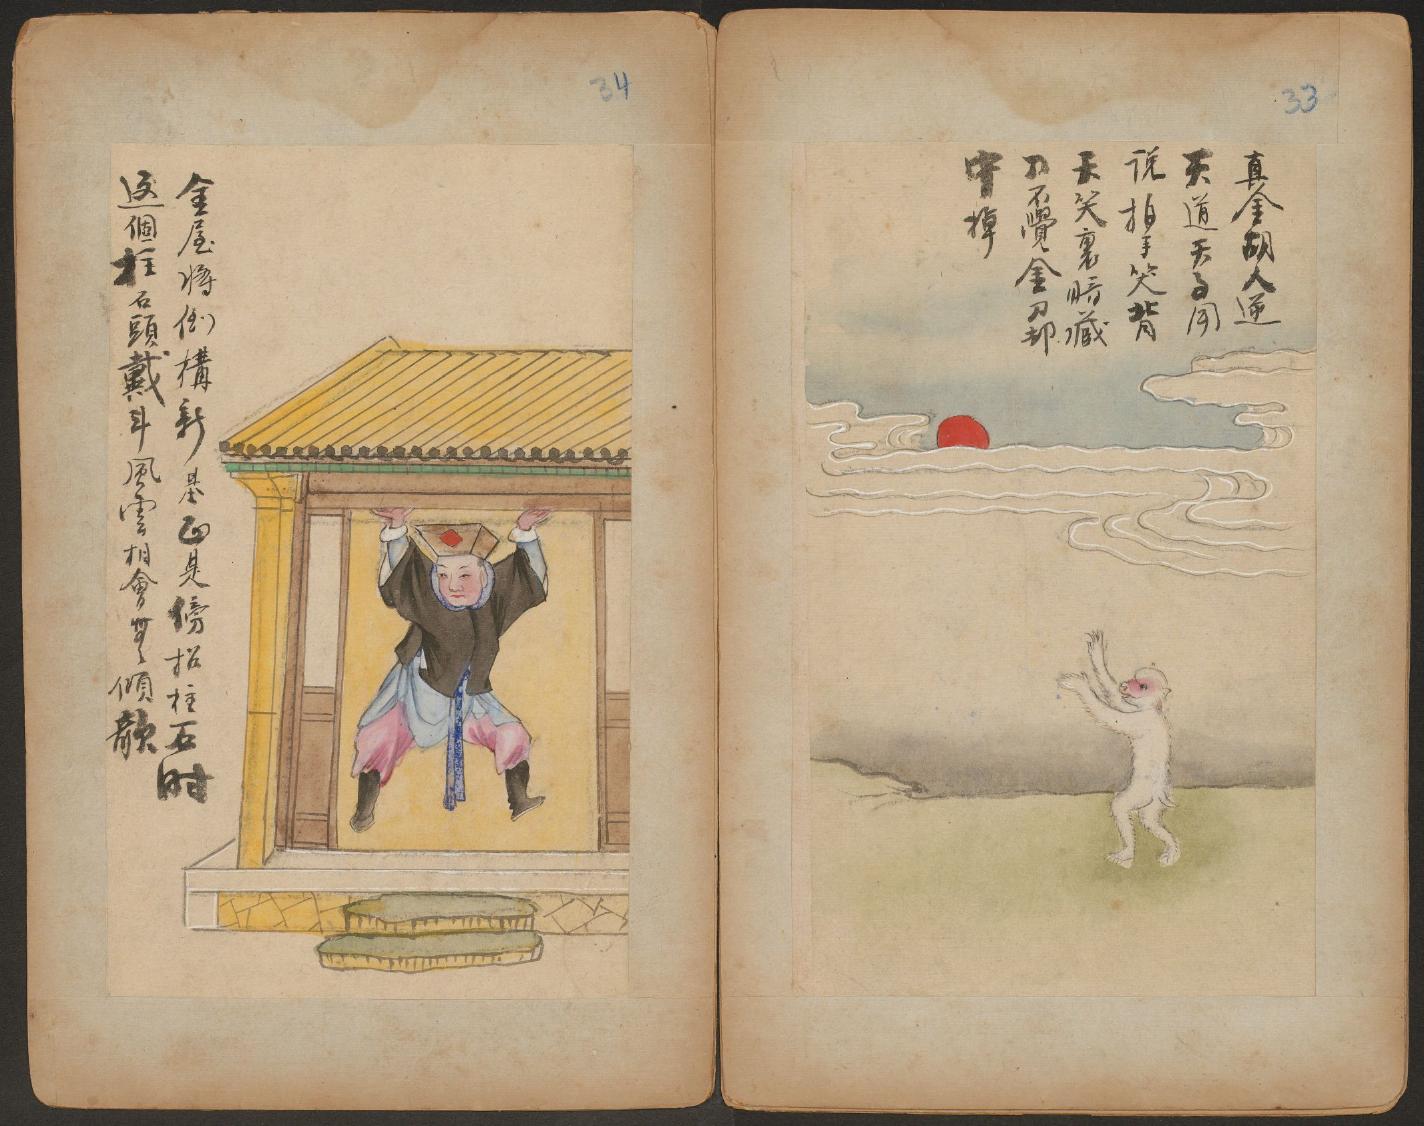 33
真金胡人逆
天道天子同
说拍手笑背
天笑裏暗藏
刀不覺金刀却
掉
34
金屋將倒構新基正見傍招柱石时
这個柱石頭戴斗風雲相會無傾歌